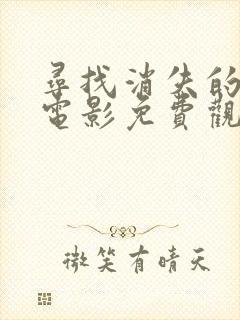 尋找消失的
電影免費觀
微笑有晴天